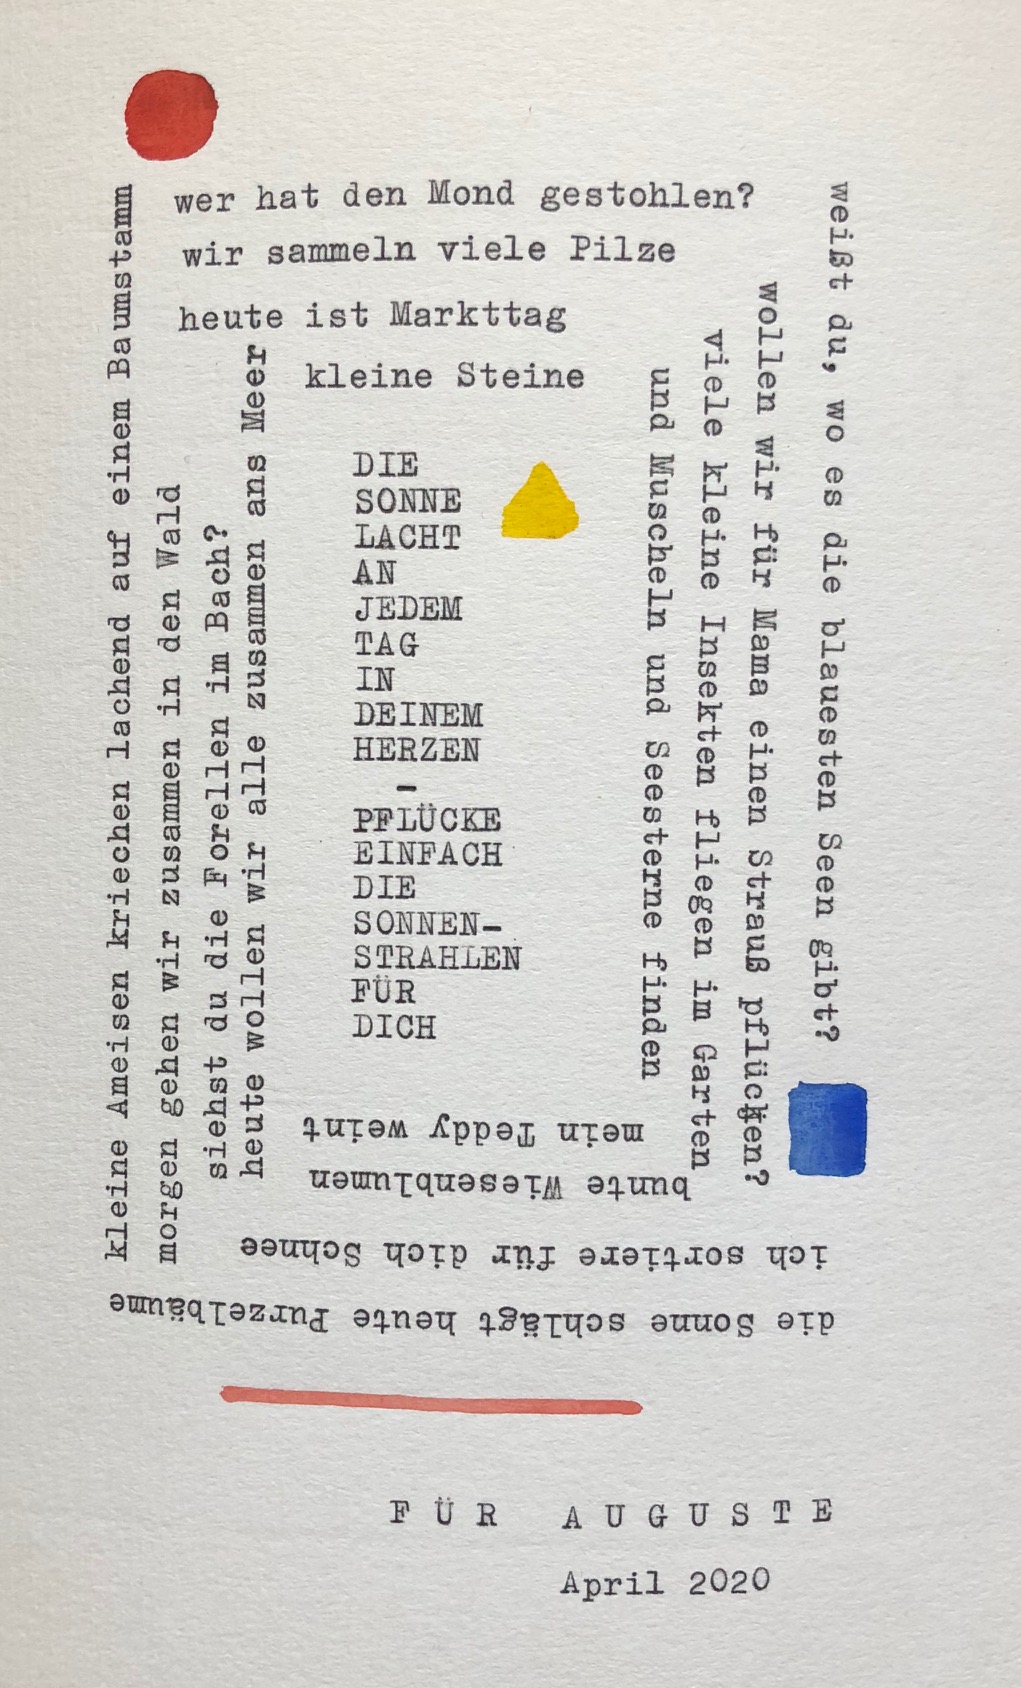 wer hat den Mond gestohlen?
wir sammeln viele Pilze
heute ist Markttag
kleine Steine
weißt du, wo es die blauesten Seen gibt?
wollen wir für Mama einen Strauß pflücken?
viele kleine Insekten fliegen im Garten
und Muscheln und Seesterne finden
die Sonne schlägt heute Purzelbäume
ich sortiere für dich Schnee
bunte Wiesenblumen
mein Teddy weint
kleine Ameisen kriechen lachend auf einem Baumstamm
morgen gehen wir zusammen in den Wald
siehst du die Forellen im Bach?
heute wollen wir alle zusammen ans Meer
DIE
SONNE
LACHT
AN
JEDEM
TAG
IN
DEINEM
HERZEN
–
PFLÜCKE
EINFACH
DIE
SONNEN-
STRAHLEN
FÜR
DICH
FÜR AUGUSTE
April 2020